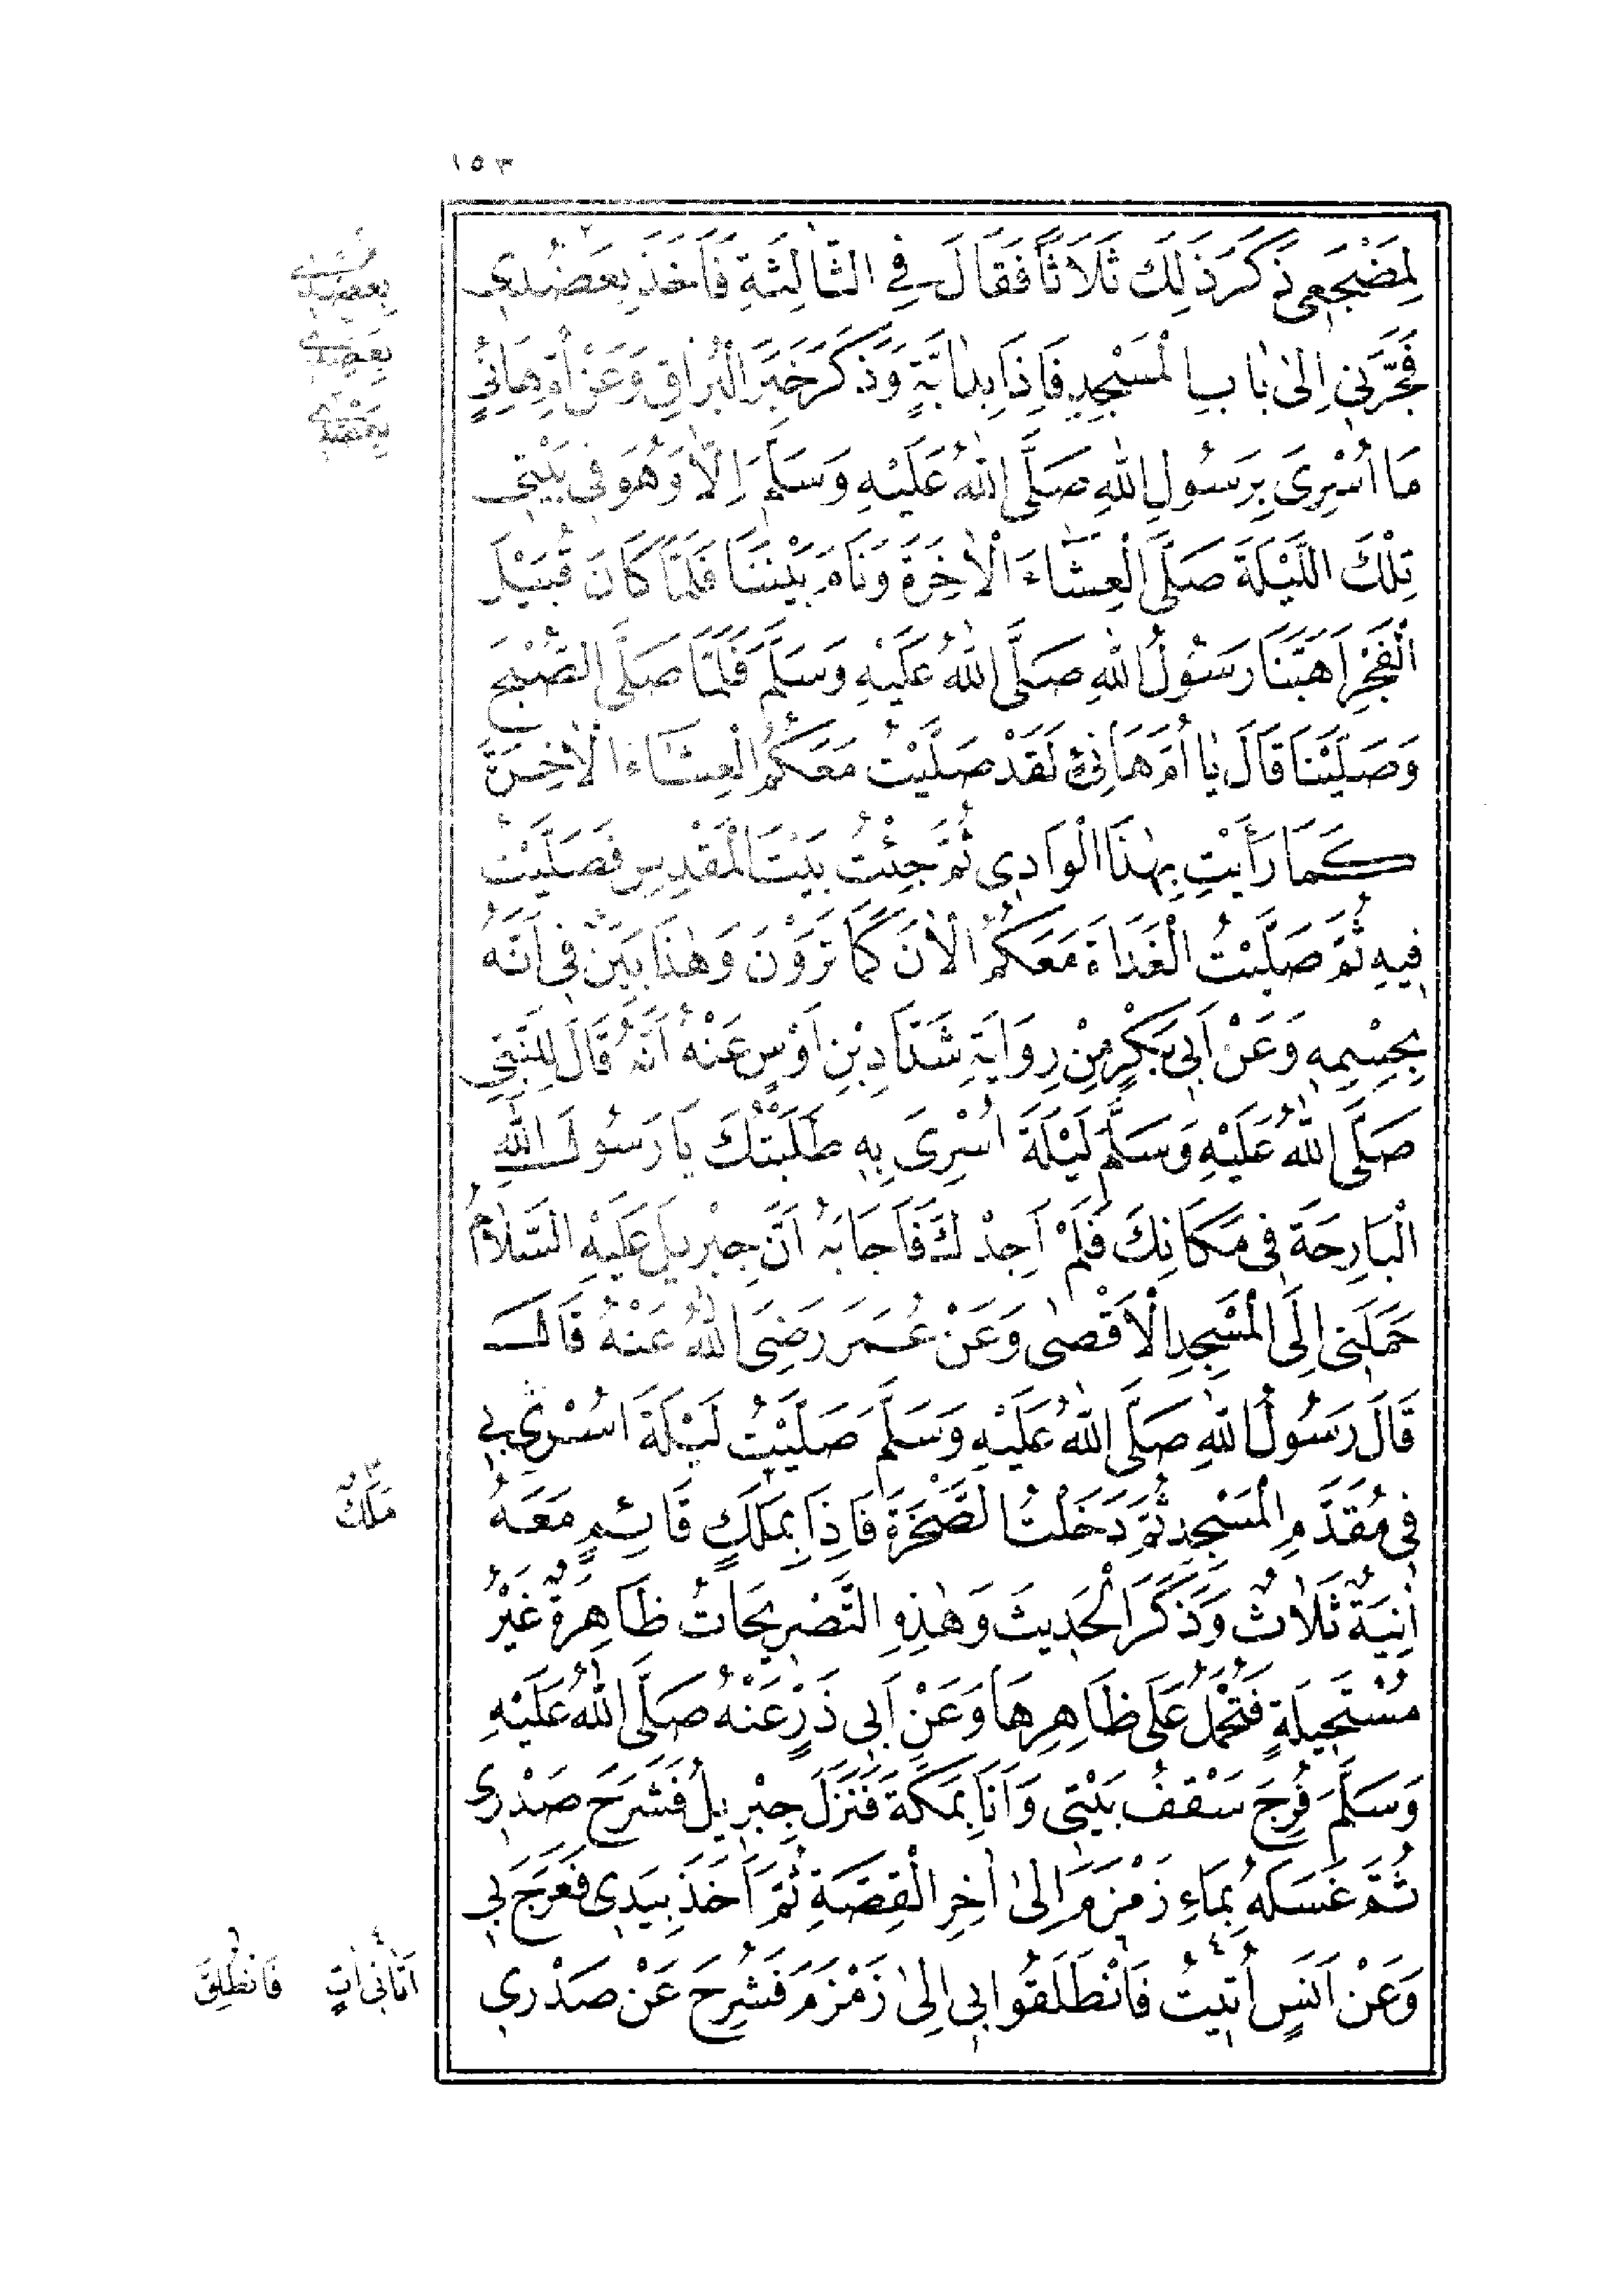 ١٥٣
لِمَضْجَعِي ذَكَرَ ذَلِكَ ثَلَاثًا فَقَالَ فِي الثَّالِثَةِ فَأَخَذَ بِعَضُدِي
فَجَرَّنِي اِلىٰ بَابِ الْمَسْجِدِ فَاِذَا بِدَابَّةٍ وَذَكَرَ خَبَرَ الْبُرَاقِ وَعَنْ اُمِّ هَانِئٍ
مَا اُسْرِىَ بِرَسُولِ اللهِ صَلَّى اللهُ عَلَيْهِ وَسَلَّمَ اِلَّا وَهُوَ فِي بَيْتِي
تِلْكَ اللَّيْلَةَ صَلَّى الْعِشَاءَ الْاٰخِرَةَ وَنَامَ بَيْنَنَا فَلَمَّا كَانَ قُبَيْلَ
الْفَجْرِ اَهَبَّنَا رَسُولُ اللهِ صَلَّى اللهُ عَلَيْهِ وَسَلَّمَ فَلَمَّا صَلَّى الصُّبْحَ
وَصَلَّيْنَا قَالَ يَا اُمَّ هَانِئٍ لَقَدْ صَلَّيْتُ مَعَكُمُ الْعِشَاءَ الْاٰخِرَةَ
كَمَا رَأَيْتِ بِهٰذَا الْوَادِي ثُمَّ جِئْتُ بَيْتَ الْمَقْدِسِ فَصَلَّيْتُ
فِيهِ ثُمَّ صَلَّيْتُ الْغَدَاةَ مَعَكُمُ الْاٰنَ كَمَا تَرَوْنَ وَهٰذَا بَيِّنٌ فِي اَنَّهُ
بِجِسْمِهِ وَعَنْ اَبِي بَكْرٍ مِنْ رِوَايَةِ شَدَّادِ بْنِ اَوْسٍ عَنْهُ اَنَّهُ قَالَ لِلنَّبِيِّ
صَلَّى اللهُ عَلَيْهِ وَسَلَّمَ لَيْلَةَ اُسْرِىَ بِهِ طَلَبْتُكَ يَا رَسُولَ اللهِ
الْبَارِحَةَ فِي مَكَانِكَ فَلَمْ اَجِدْكَ فَاَجَابَهُ اَنَّ جِبْرِيلَ عَلَيْهِ السَّلَامُ
حَمَلَنِي اِلَى الْمَسْجِدِ الْاَقْصٰى وَعَنْ عُمَرَ رَضِيَ اللهُ عَنْهُ قَالَ
قَالَ رَسُولُ اللهِ صَلَّى اللهُ عَلَيْهِ وَسَلَّمَ صَلَّيْتُ لَيْلَةَ اُسْرِىَ بِي
فِي مُقَدَّمِ الْمَسْجِدِ ثُمَّ دَخَلْتُ الصَّخْرَةَ فَاِذَا بِمَلَكٍ قَائِمٍ مَعَهُ
اٰنِيَةٌ ثَلَاثٌ وَذَكَرَ الْحَدِيثَ وَهٰذِهِ التَّصْرِيحَاتُ ظَاهِرَةٌ غَيْرُ
مُسْتَحِيلَةٍ فَتُحْمَلُ عَلَى ظَاهِرِهَا وَعَنْ اَبِي ذَرٍّ عَنْهُ صَلَّى اللهُ عَلَيْهِ
وَسَلَّمَ فُرِجَ سَقْفُ بَيْتِي وَاَنَا بِمَكَّةَ فَنَزَلَ جِبْرِيلُ فَشَرَحَ صَدْرِي
ثُمَّ غَسَلَهُ بِمَاءِ زَمْزَمَ اِلىٰ اٰخِرِ الْقِصَّةِ ثُمَّ اَخَذَ بِيَدِي فَعَرَجَ بِي
وَعَنْ اَنَسٍ اُتِيتُ فَانْطَلَقُوا بِي اِلىٰ زَمْزَمَ فَشُرِحَ عَنْ صَدْرِي
بِعَضُدِي
بِعَضُدِي
مَلَكٌ
اَتَانِي اٰتٍ
فَانْطُلِقَ